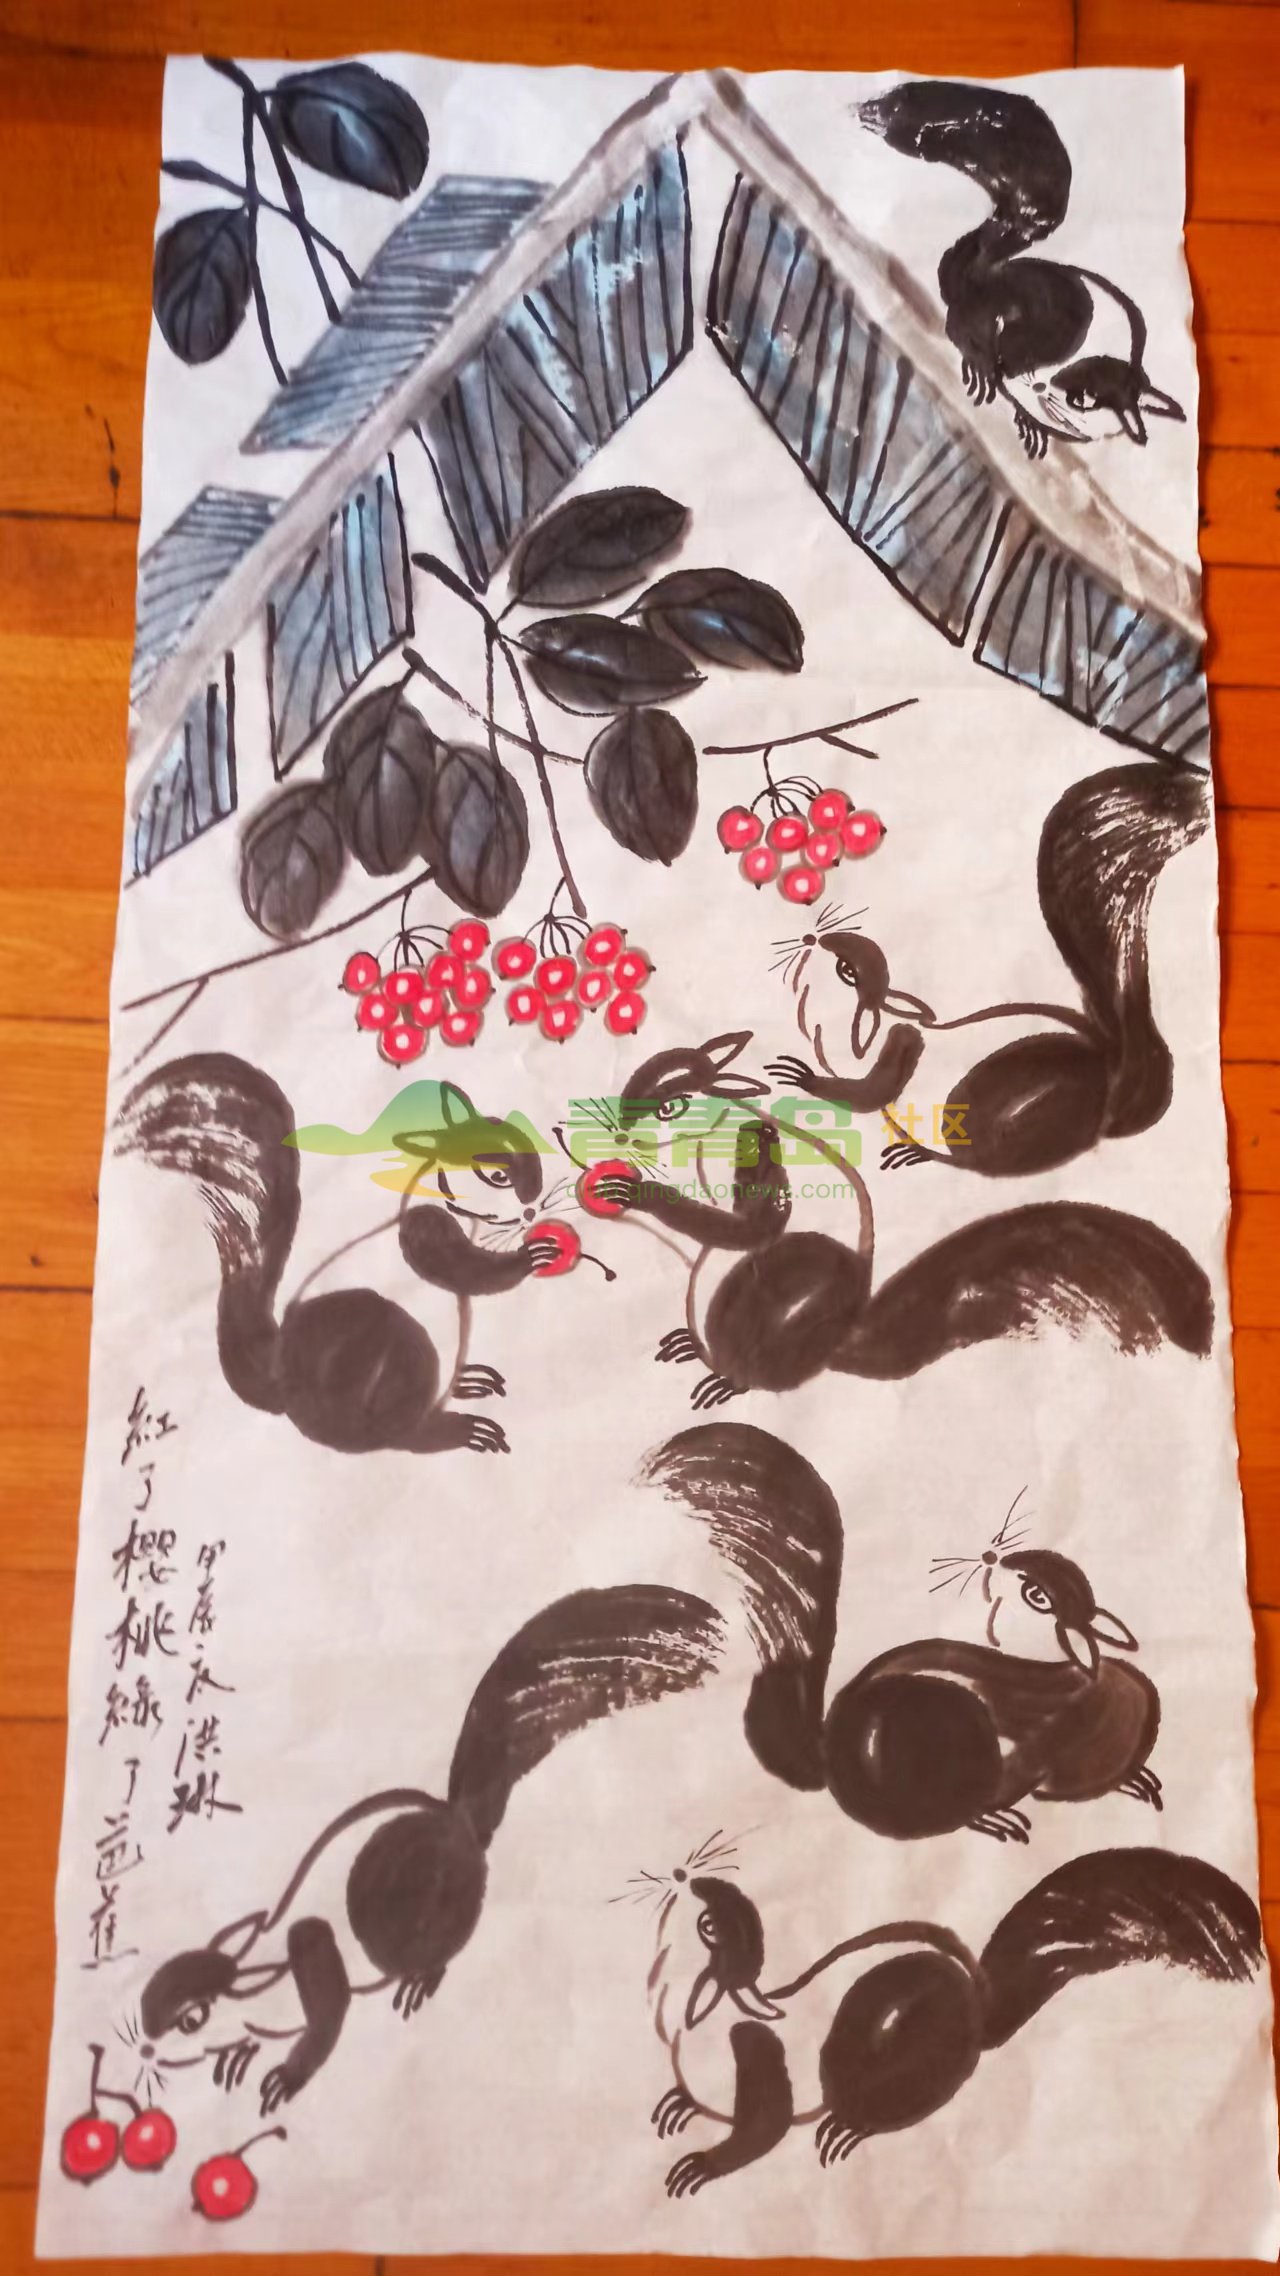 青青岛 社区
club.qingdaonews.com
紅了櫻桃綠了芭蕉
甲辰之夜洪琳